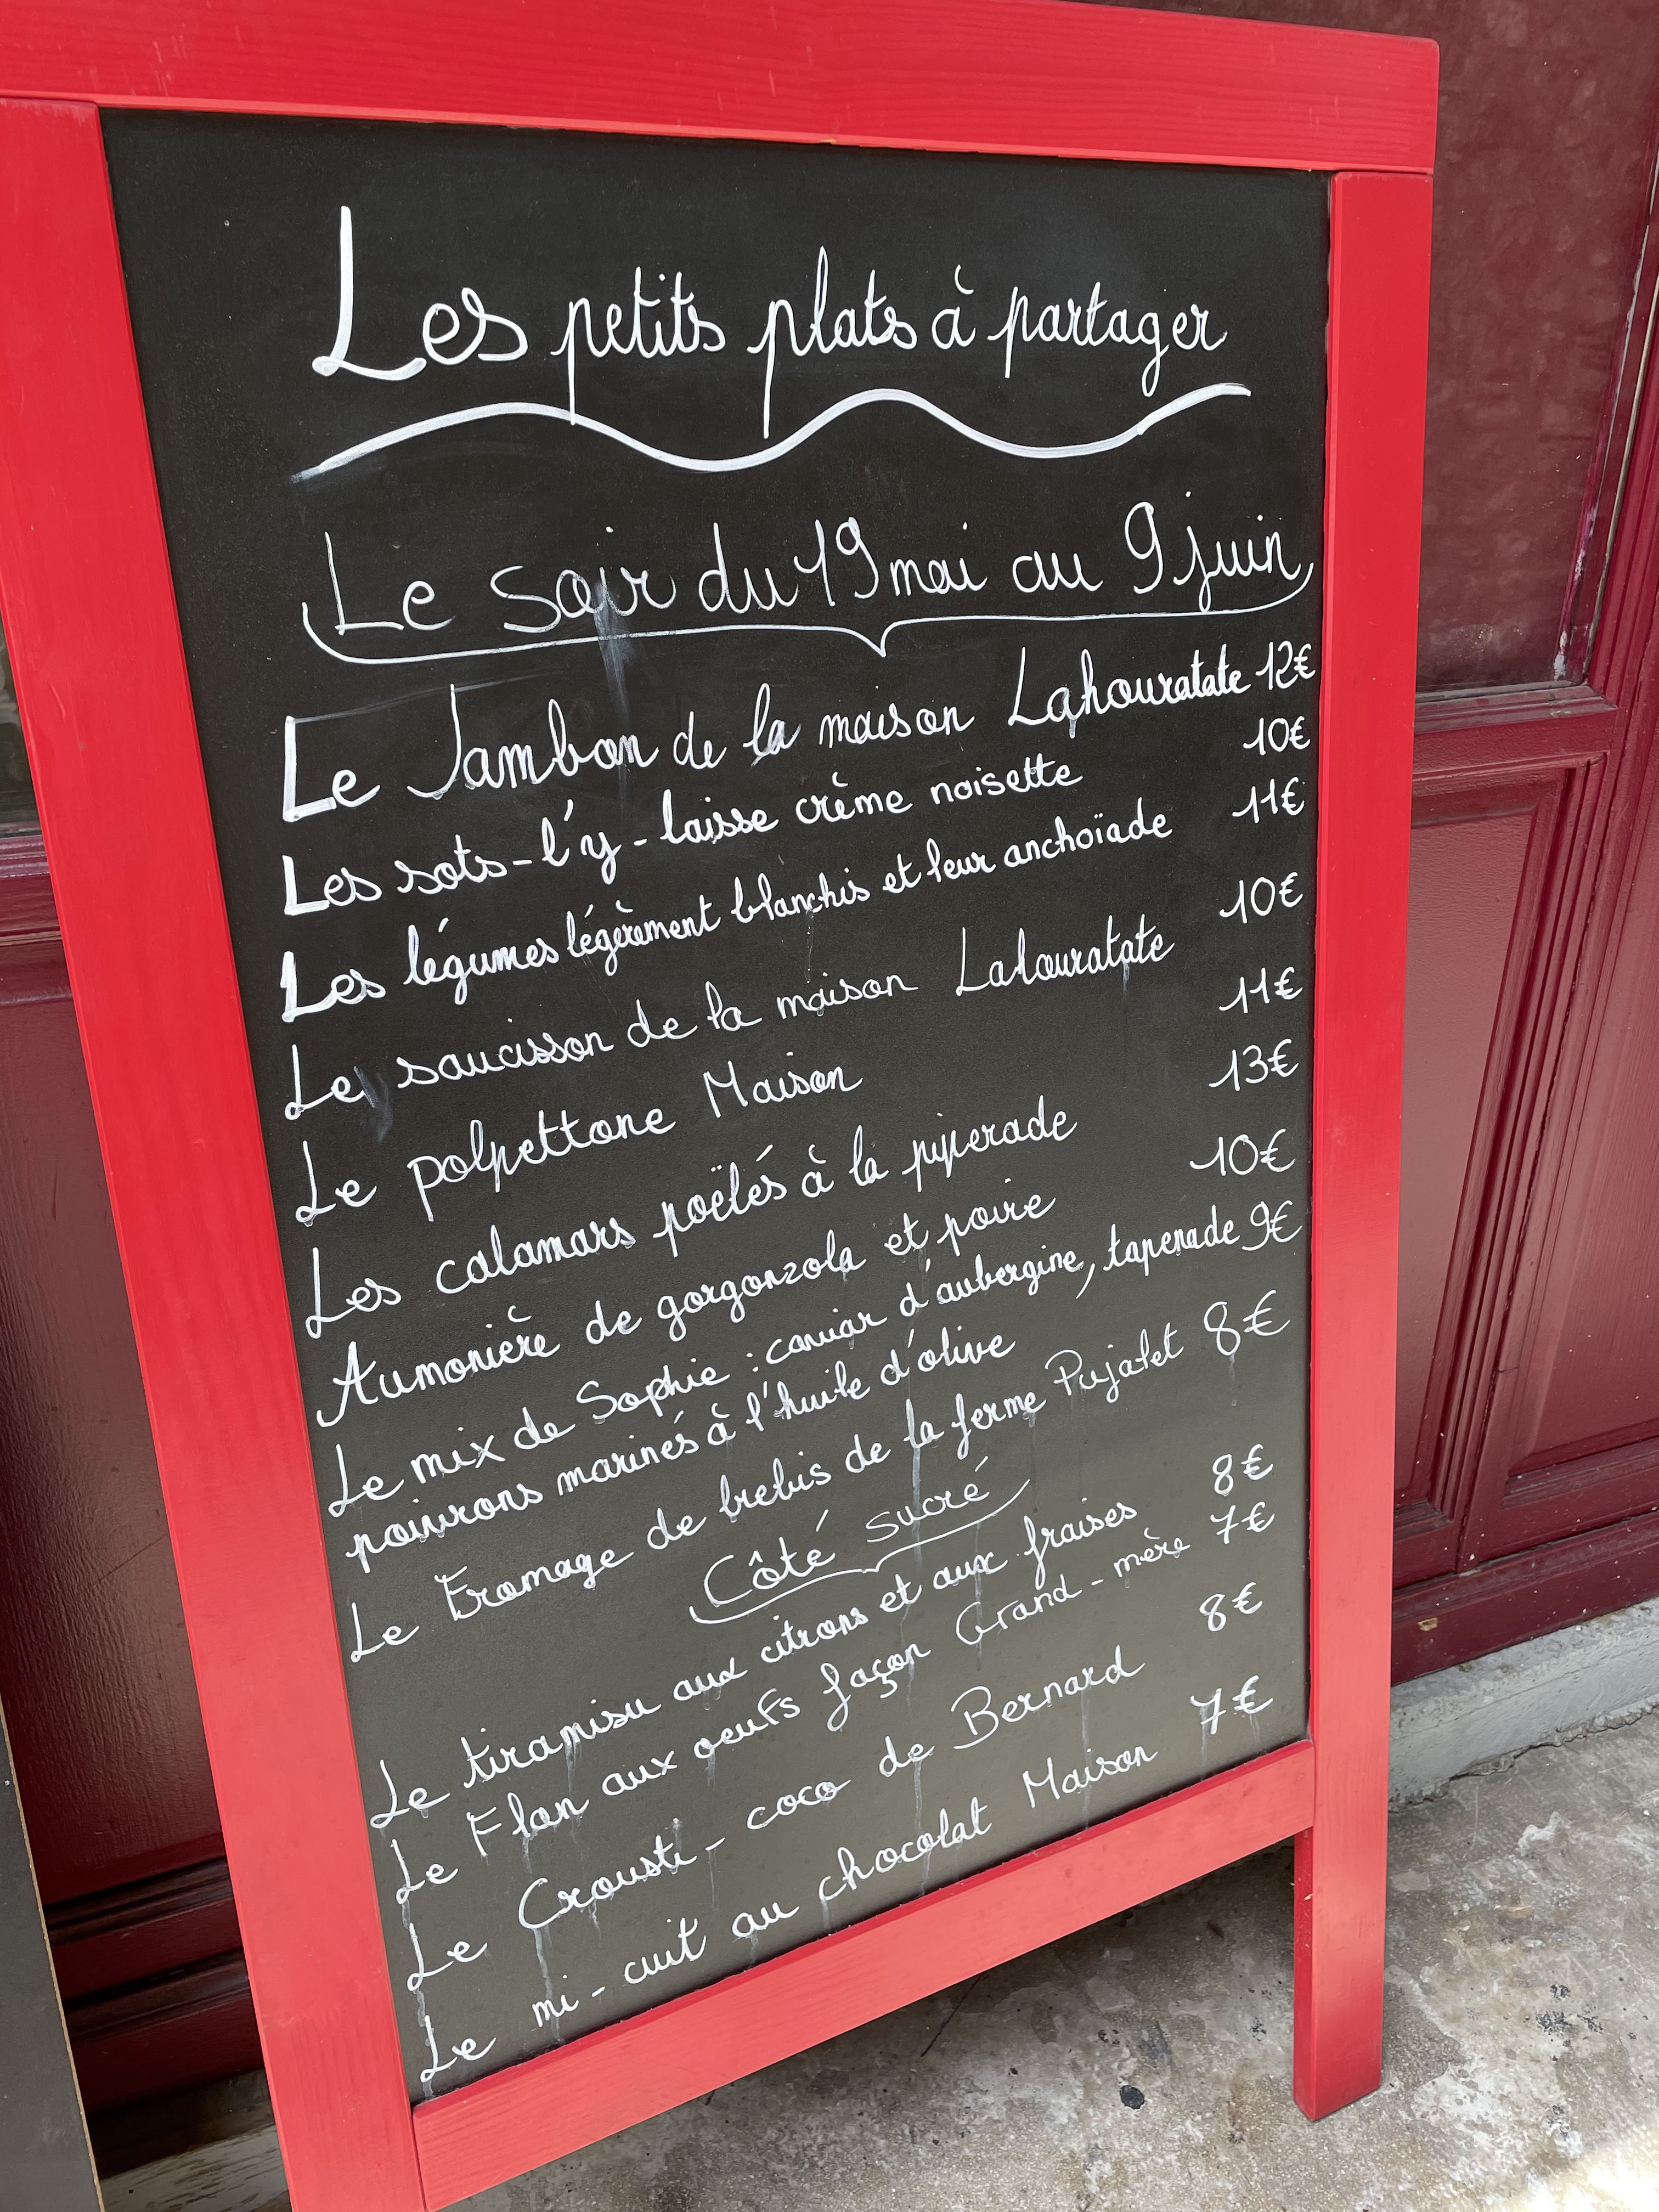 Les petits plats à partager
Le soir du 19 mai au 9 juin
Le Jambon de la maison Lahouratate 12€
Les sots-l'y-laisse crème noisette 10€
Les légumes légèrement blanchis et leur anchoïade 11€
Le saucisson de la maison Lalouratate 10€
Le polpettone Maison 11€
Les calamars poëlés à la piperade 13€
Aumonière de gorgonzola et poire 10€
Le mix de Sophie : caviar d'aubergine, tapenade 9€
poivrons marinés à l'huile d'olive
Le Fromage de brebis de la ferme Pujalet 8€
Côté sucré
Le tiramisu aux citrons et aux fraises 8€
Le Flan aux oeufs façon Grand-mère 7€
Le Crousti-coco de Bernard 8€
Le mi-cuit au chocolat Maison 7€